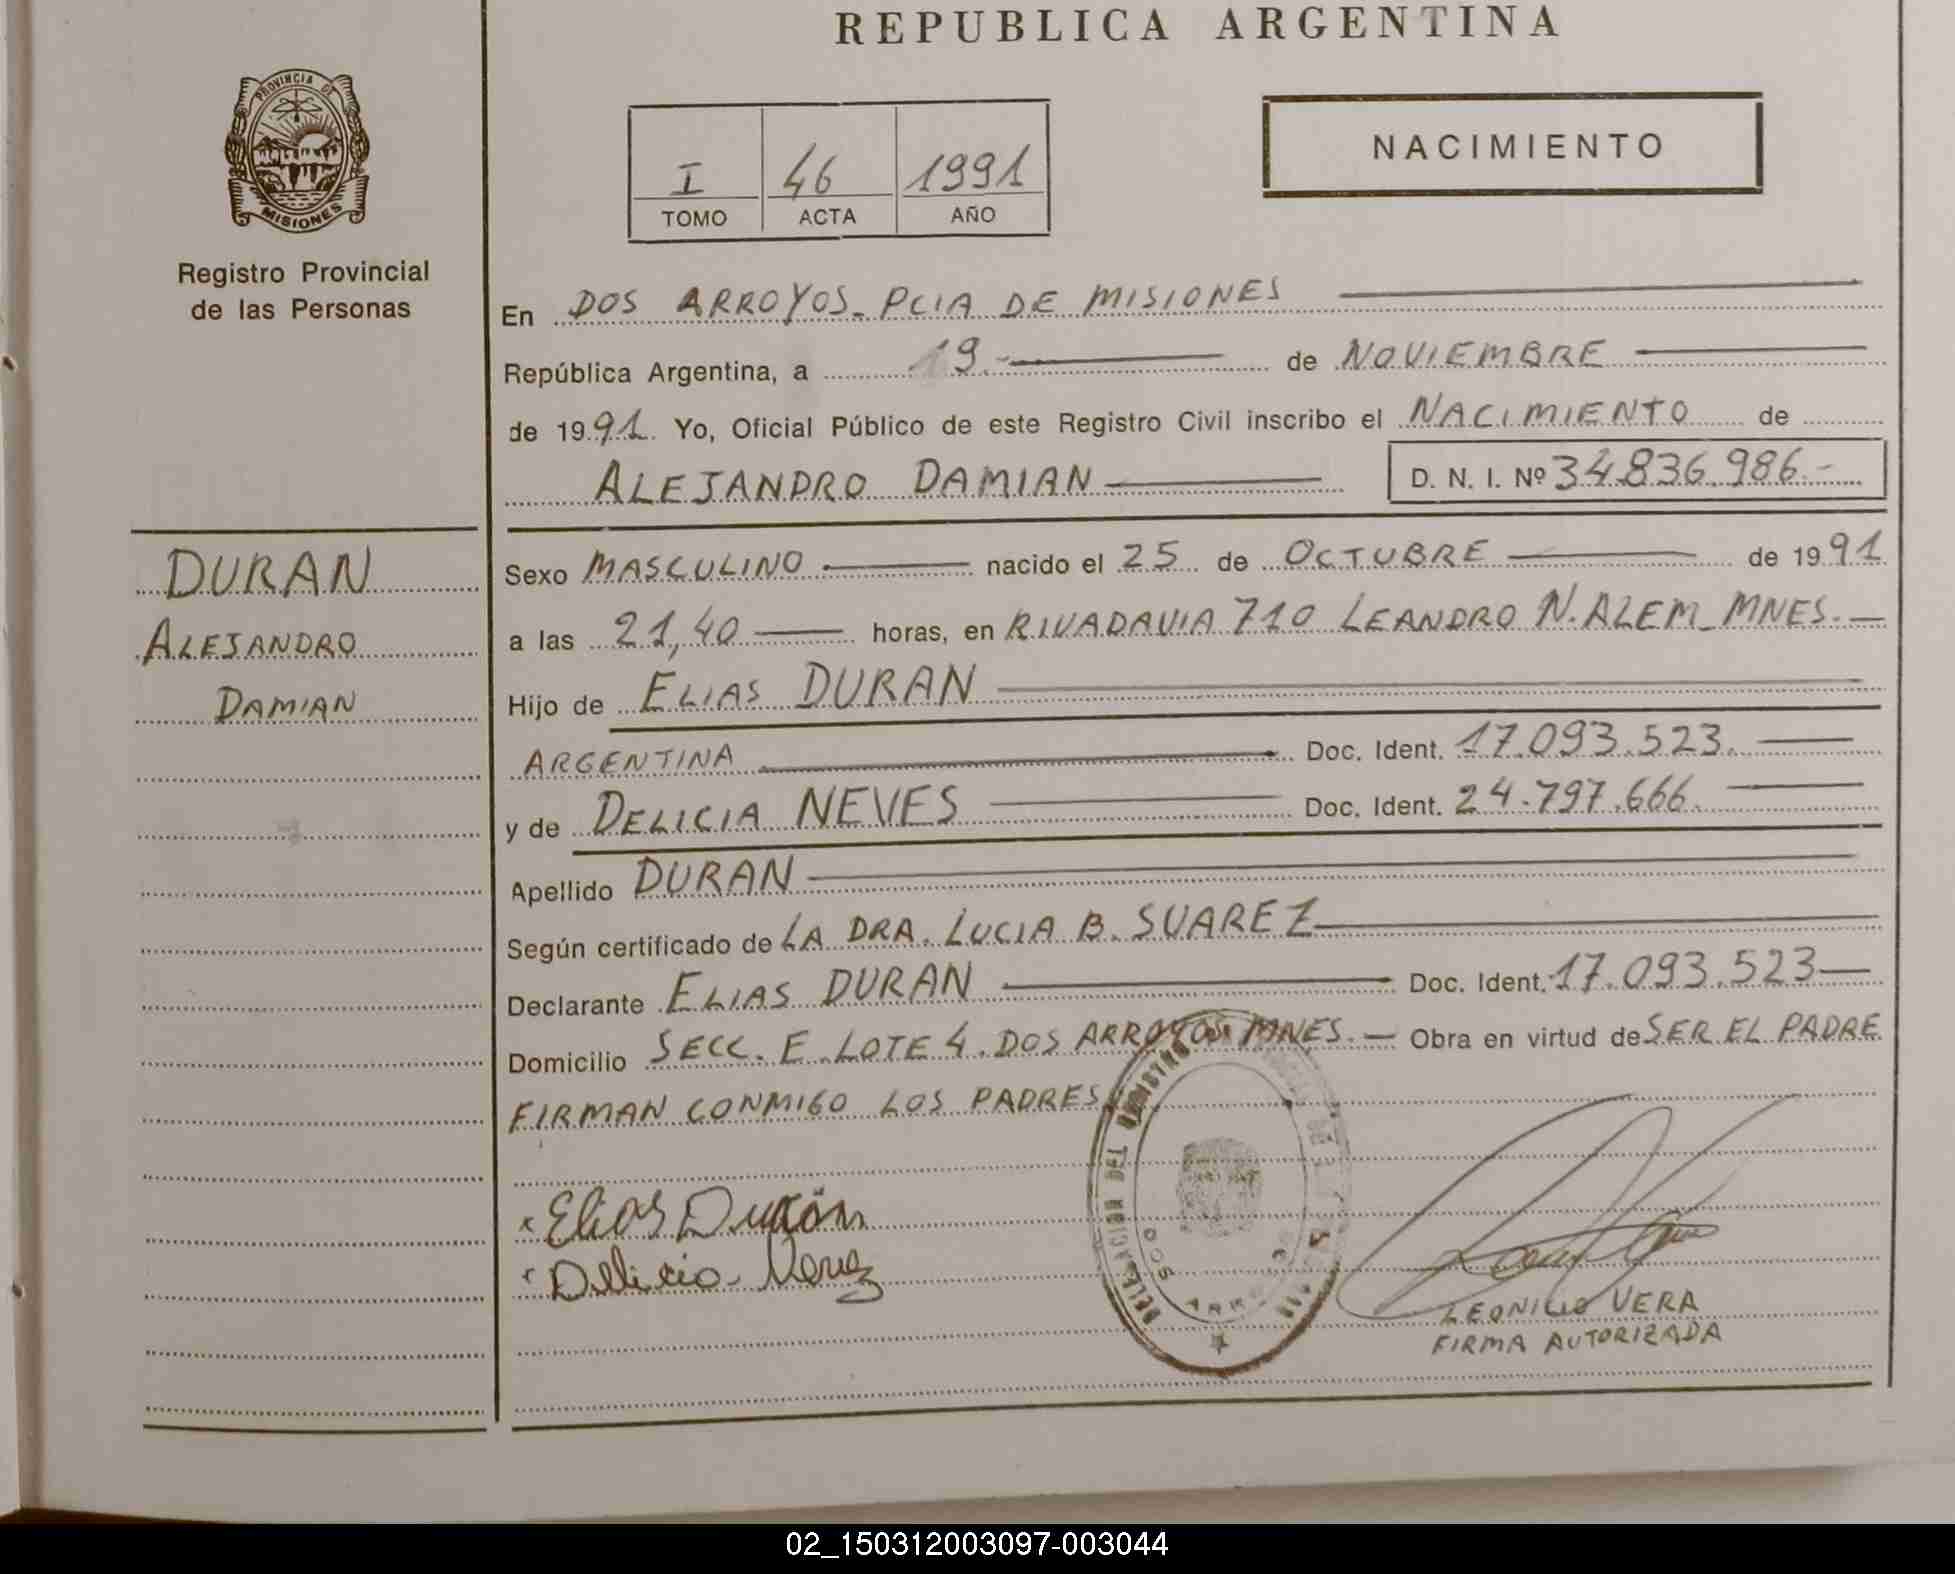 REPUBLICA ARGENTINA
PROVINCIA DE
MISIONES
Registro Provincial
de las Personas
I 46 1991
TOMO ACTA AÑO
NACIMIENTO
En DOS ARROYOS_PCIA DE MISIONES
República Argentina, a 19.- de NOVIEMBRE
de 1991. Yo, Oficial Público de este Registro Civil inscribo el NACIMIENTO de
ALEJANDRO DAMIAN D. N. I. Nº 34.836.986.-
DURAN
ALEJANDRO
DAMIAN
Sexo MASCULINO nacido el 25 de OCTUBRE de 1991
a las 21,40 horas, en RIVADAVIA 710 LEANDRO N. ALEM_MNES.-
Hijo de ELIAS DURAN
ARGENTINA Doc. Ident. 17.093.523.
y de DELICIA NEVES Doc. Ident. 24.797.666.
Apellido DURAN
Según certificado de LA DRA. LUCIA B. SUAREZ
Declarante ELIAS DURAN Doc. Ident. 17.093.523
Domicilio SECC. E. LOTE 4. DOS ARROYOS MNES.- Obra en virtud de SER EL PADRE
FIRMAN CONMIGO LOS PADRES
Elias Durán
Delicia
DELEGACION DEL REGISTRO
DOS ARROYOS
LEONILIO VERA
FIRMA AUTORIZADA
02_150312003097-003044